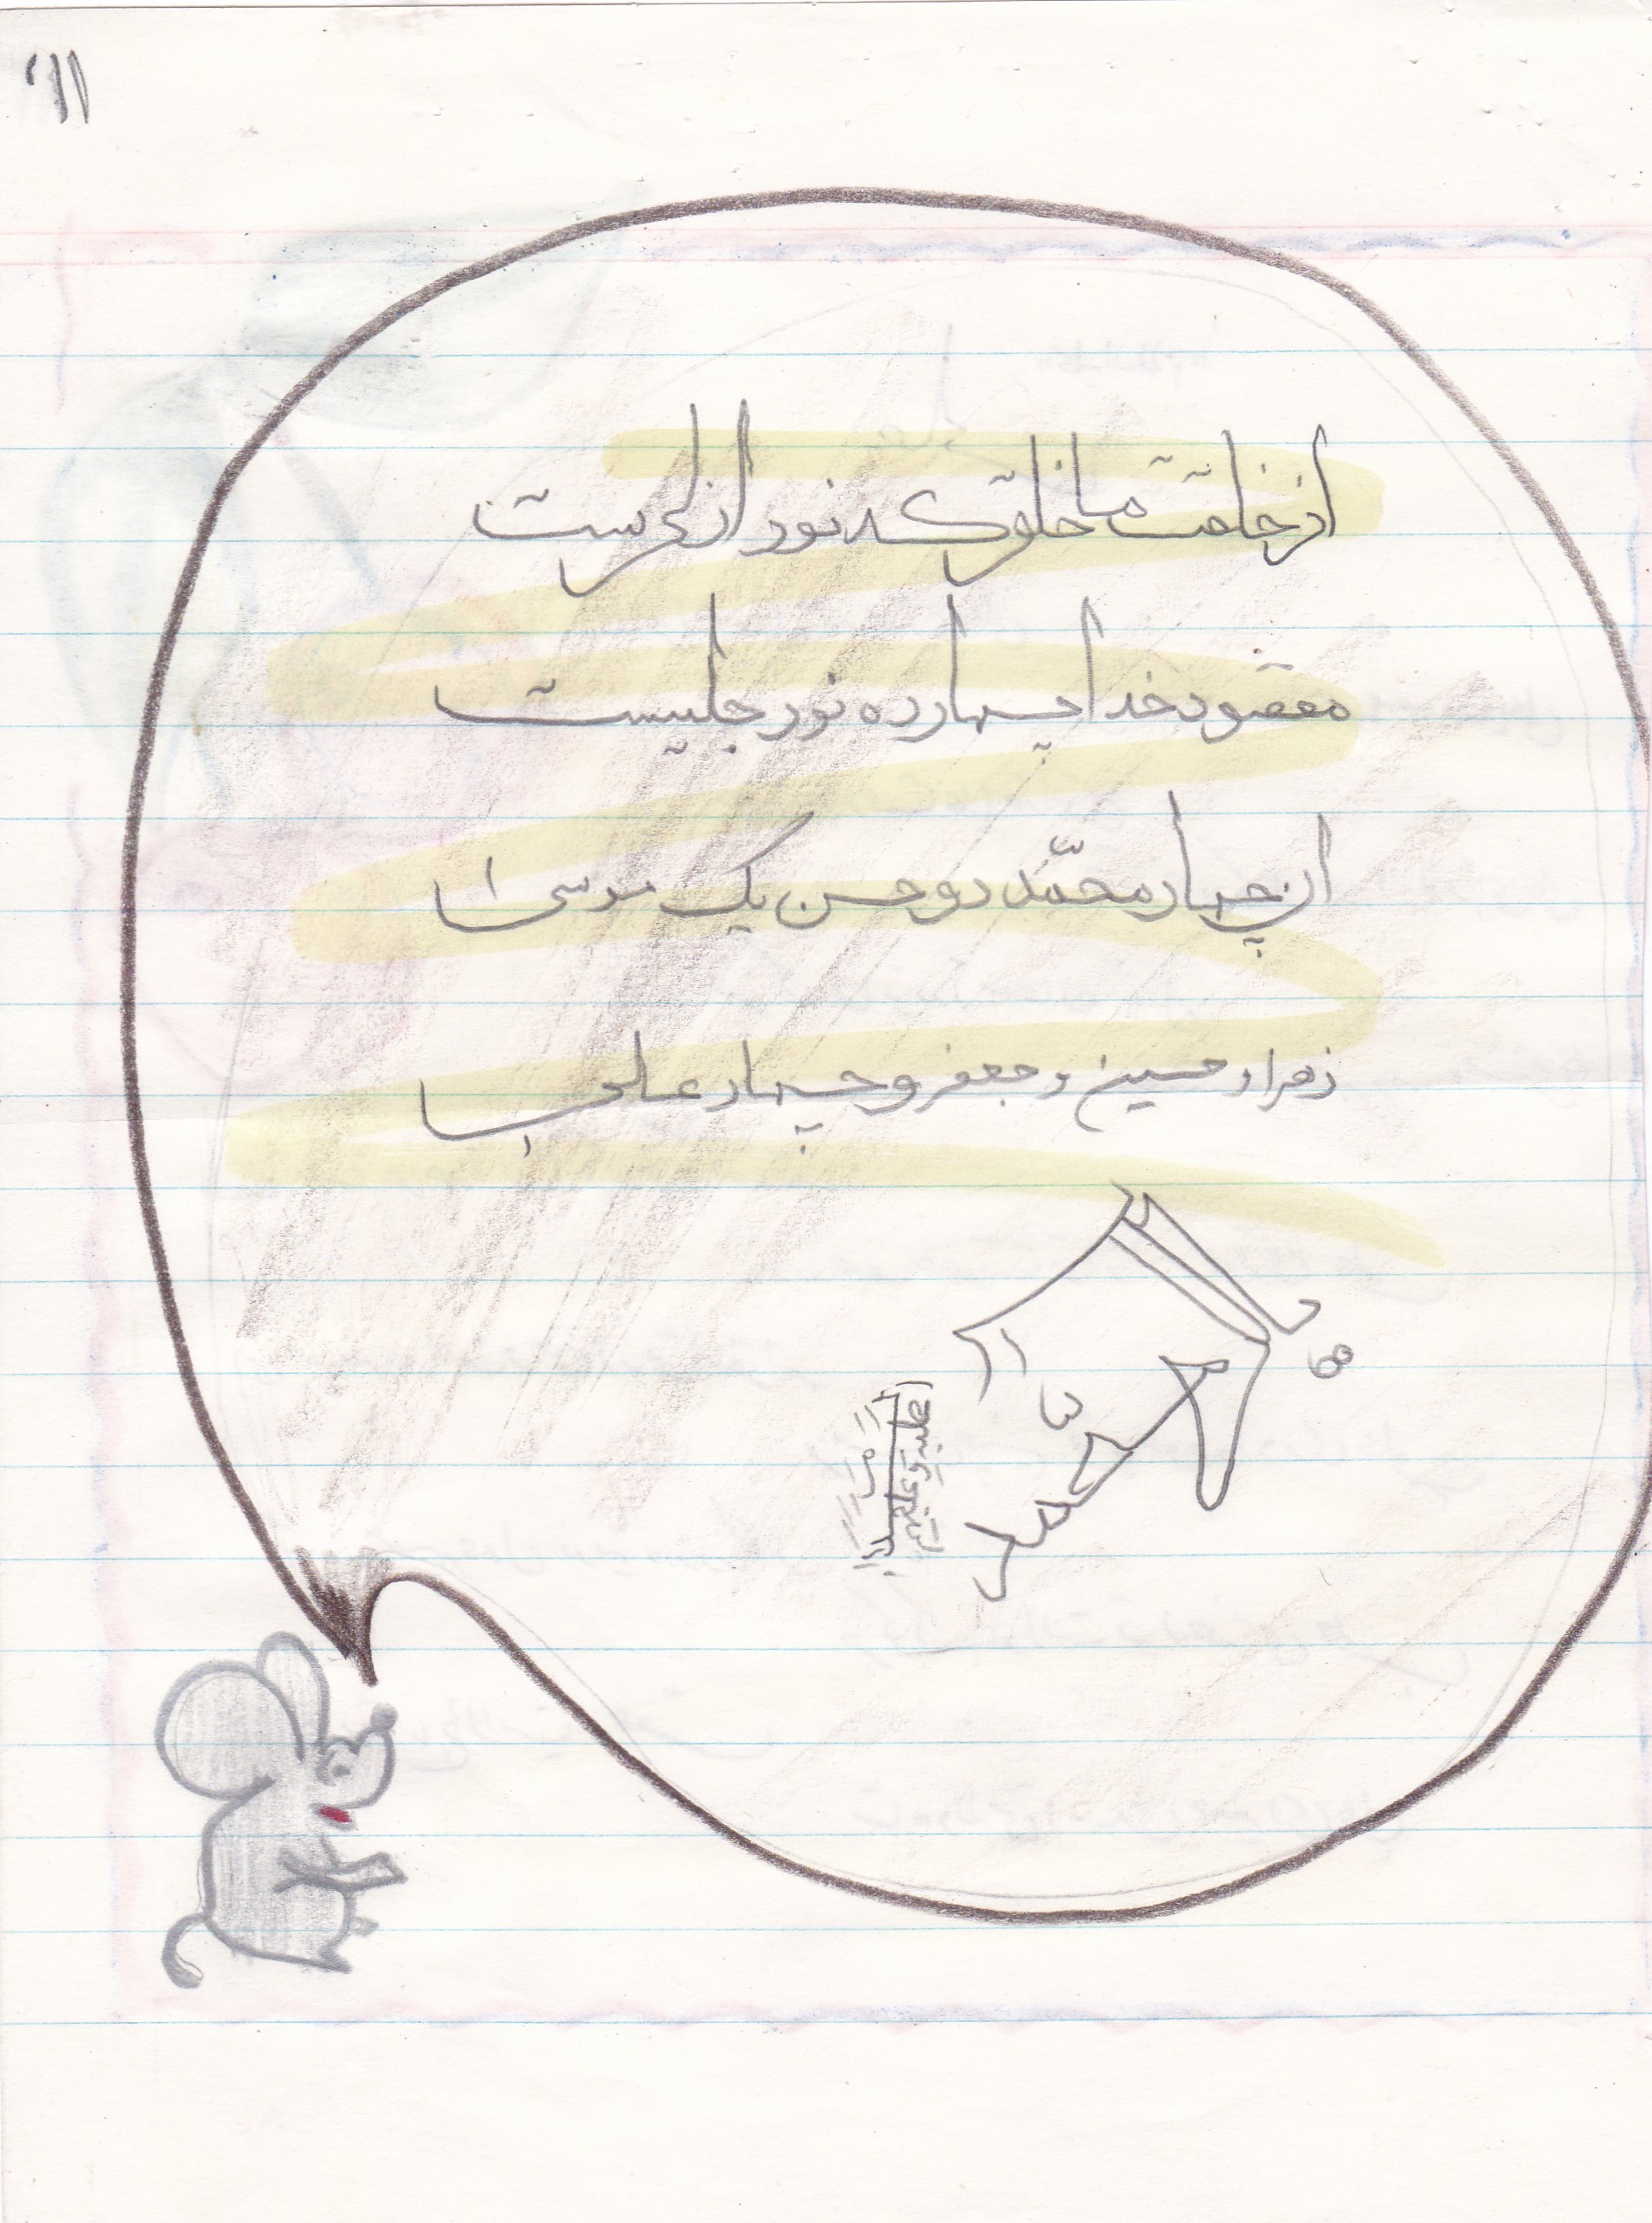 از خلقت ما خلق که نور ازلیست
مقصود خدا چهارده نور جلیست
از چهار محمّد دو حسن یک موسی
زهرا و حسین و جعفر و چهار علی
محمّد